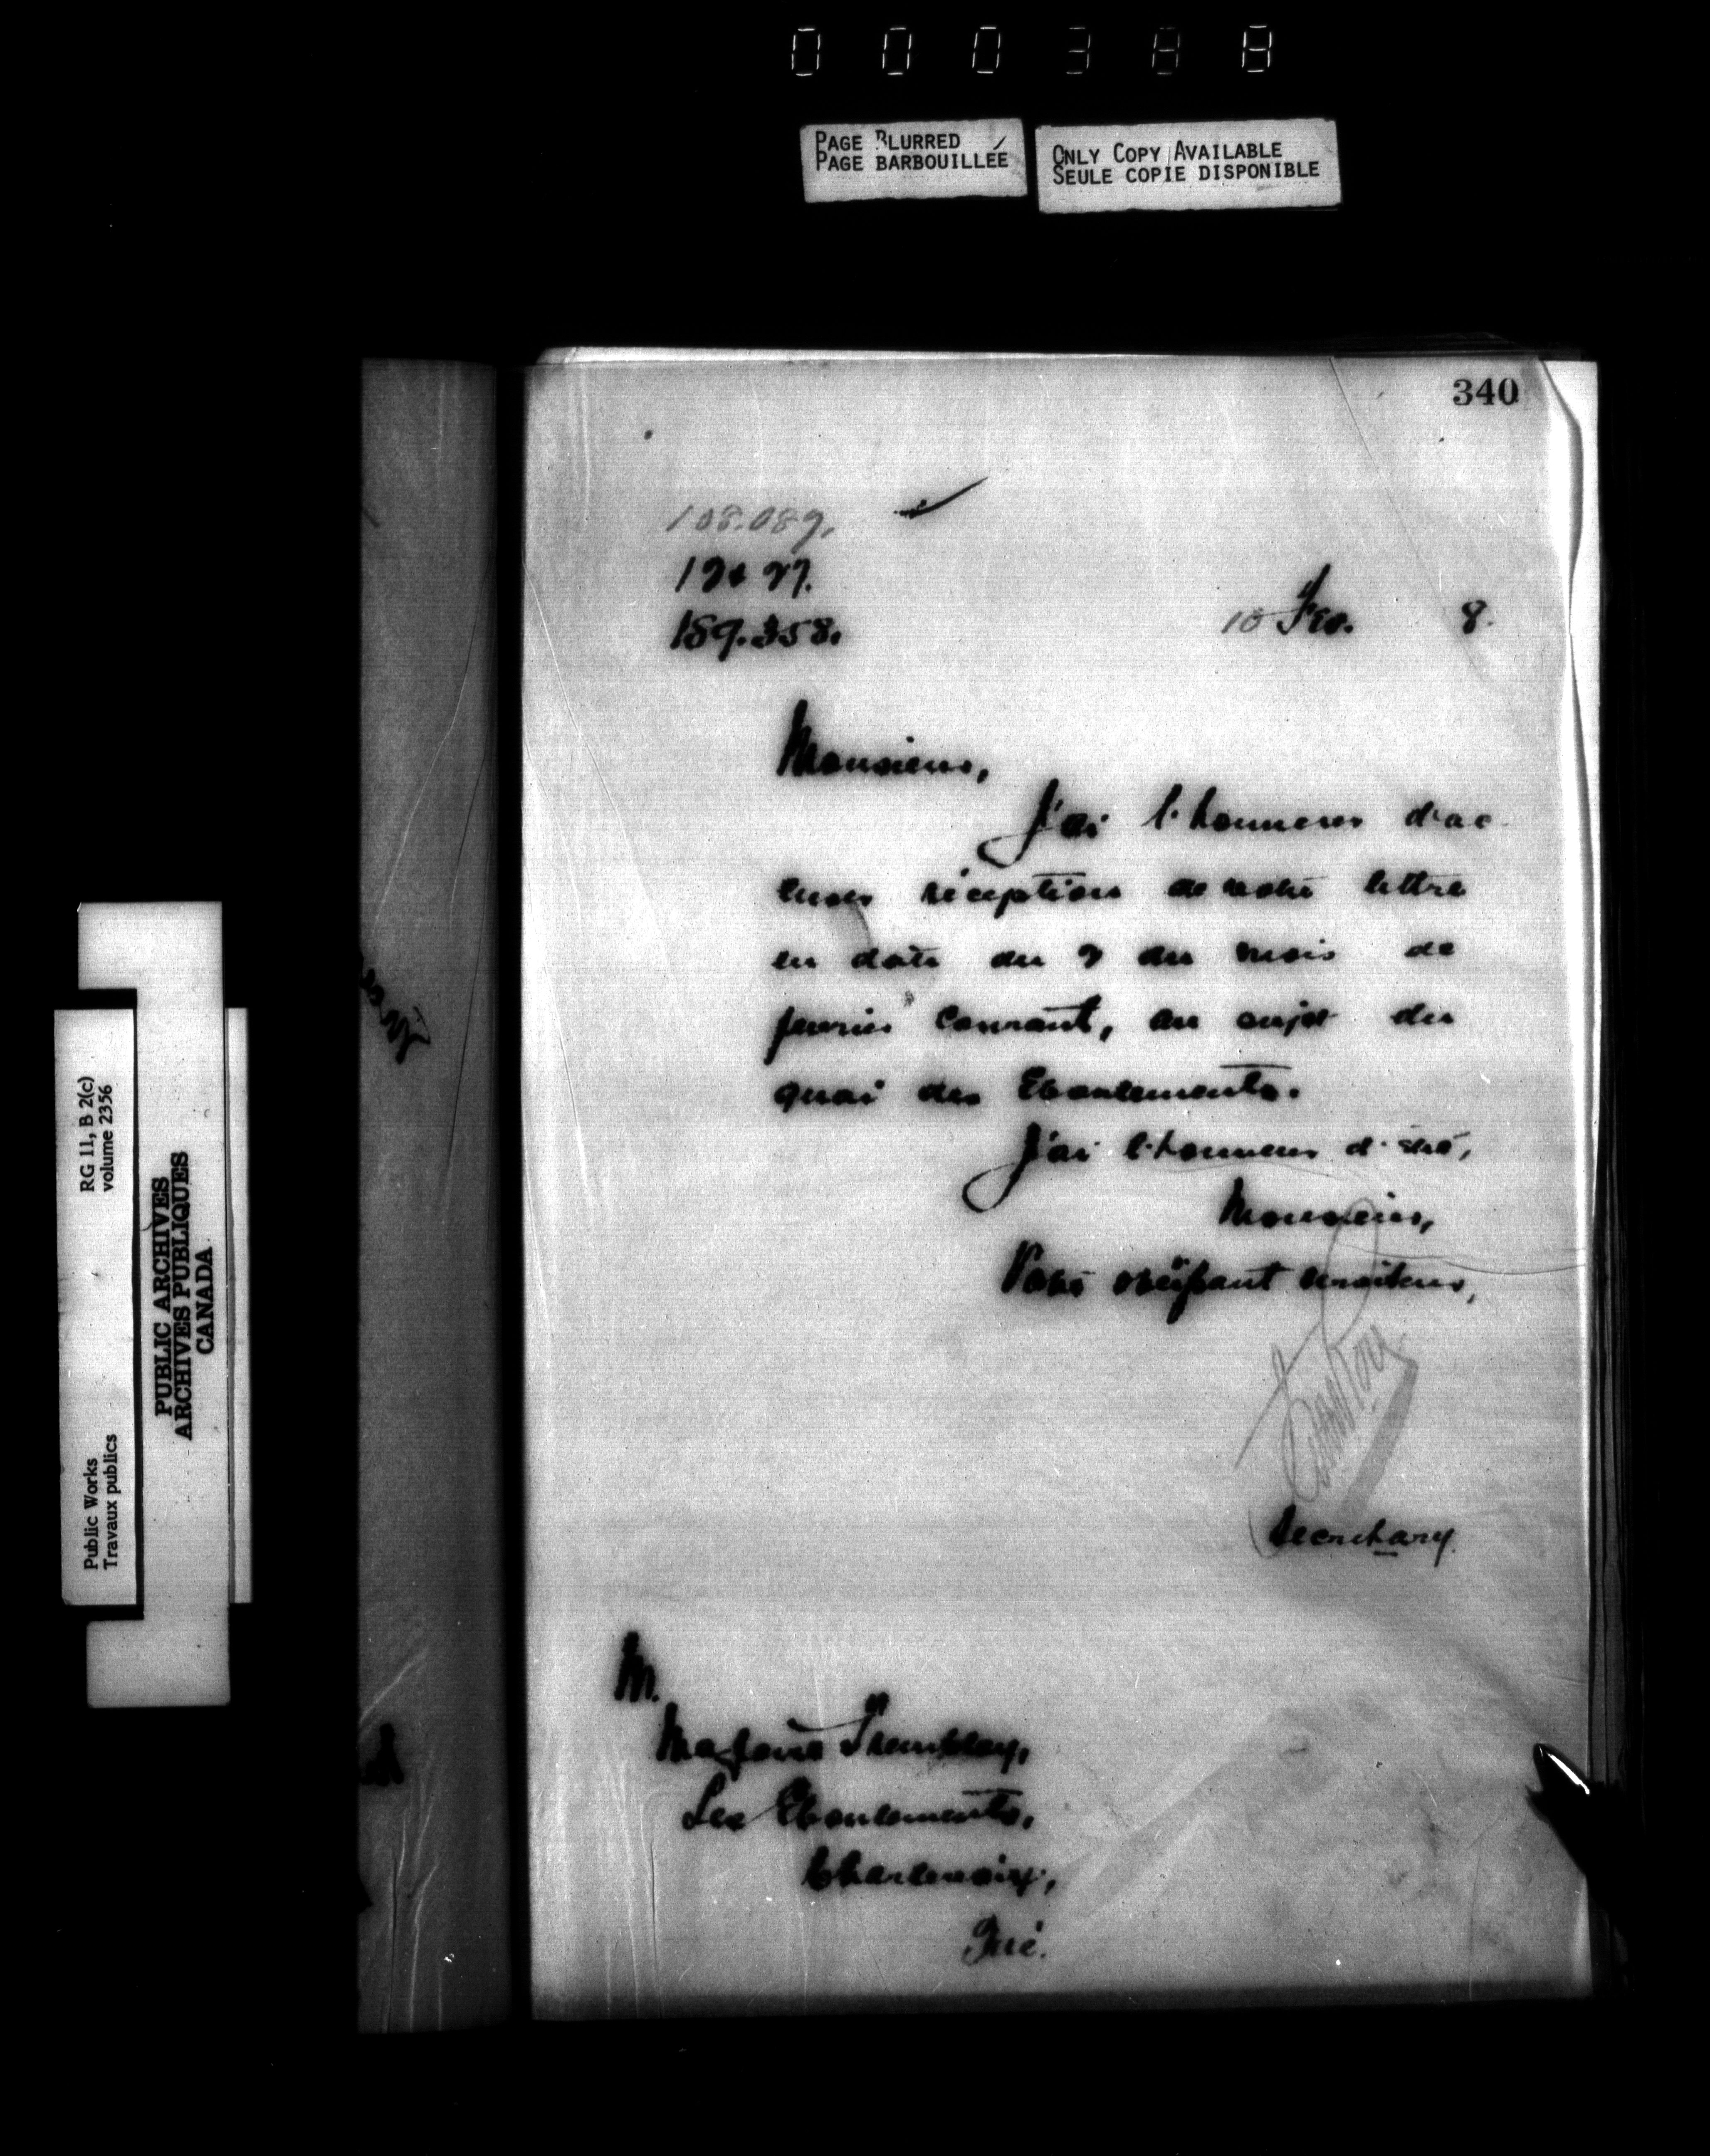 000388
PAGE BLURRED
PAGE BARBOUILLÉE
ONLY COPY AVAILABLE
SEULE COPIE DISPONIBLE
340
108.089.
189.358.
10 Fev. 8.
Monsieur,
J'ai l'honneur d'ac
cuser réception de votre lettre
en date du 7 du mois de
fevrier courant, au sujet du
quai des Eboulements.
J'ai l'honneur d'être,
Monsieur,
Votre obéissant serviteur,
Secretary.
M.
Tremblay,
Les Eboulements,
Charlevoix,
Qué.
RG 11, B 2(c)
volume 2356
PUBLIC ARCHIVES
ARCHIVES PUBLIQUES
CANADA
Public Works
Travaux publics